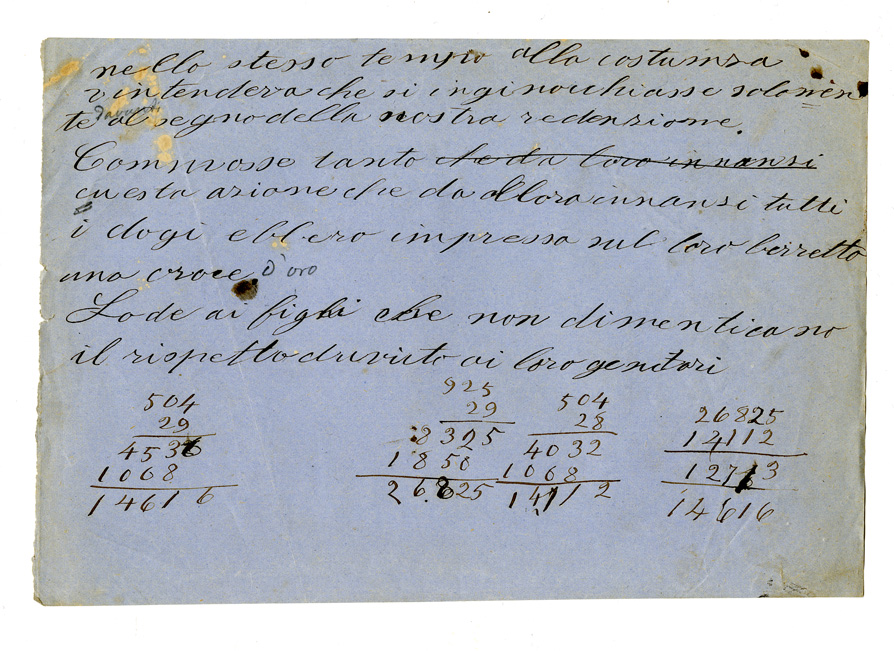 nello stesso tempo alla costumza
intendeva che si inginocchiasse solamen
davanti
te al segno della nostra redenzione.
Commosse tanto che da loro innansi
questa azione che da allora innansi tutti
i dogi ebbero impressa sul loro berretto
una croce. D'oro
Lode ai figli che non dimenticano
il rispetto druvuto ai loro genitori
504
29
4536
1068
14616
925
29
8325
1850
26825
504
28
4032
1068
14112
26825
14112
12713
14616